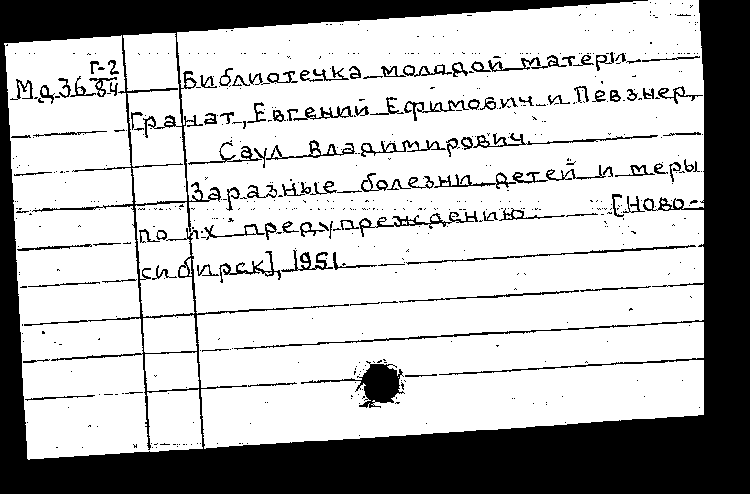 Библиотечка молодой матери
Мд36 Г-2/84
Гранат, Евгений Ефимович и Певзнер,
Саул Владимирович.
Заразные болезни детей и меры
по их предупреждению. [Ново-
сибирск], 1951.